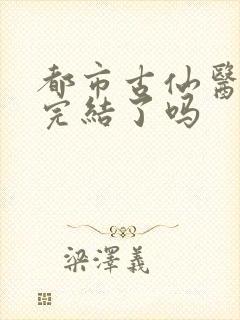 都市古仙醫
完結了吗
梁澤義